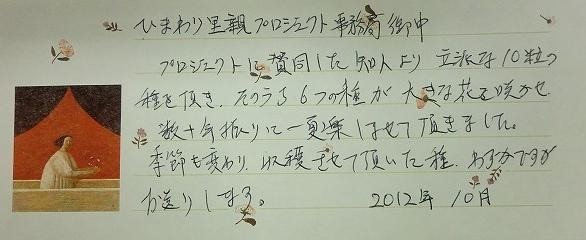 ひまわり里親プロジェクト事務局御中
プロジェクトに賛同した知人より 立派な10粒の
種を頂き、そのうち6つの種が大きな花を咲かせ
数十年振りに一夏楽しませて頂きました。
季節も変わり、収穫させて頂いた種、わずかですが
お送りします。 2012年 10月